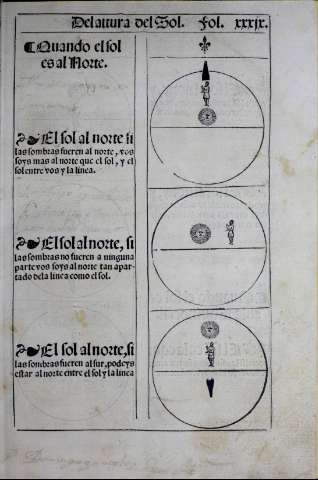 Del altura del Sol. Fol. xxxix.
Quando el sol
es al Norte.
El sol al norte si
las sombras fueren al norte, vos
soys mas al norte que el sol, y el
sol entre vos y la linea.
El sol al norte, si
las sombras no fueren a ninguna
parte vos soys al norte tan apar-
tado dela linea como el sol.
El sol al norte, si
las sombras fueren al sur, podeys
estar al norte entre el sol y la linea